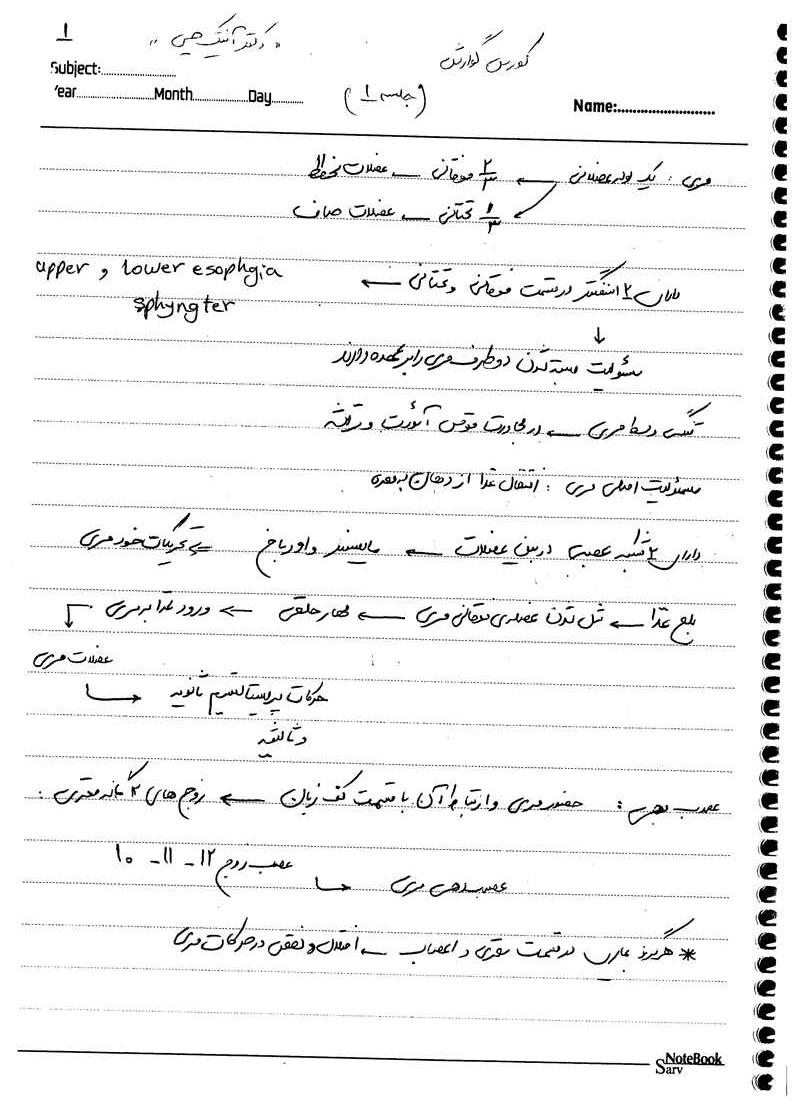 ۱
کورس گوارش
« دکتر آنتیک چی »
Subject:
Year Month Day
(جلسه ۱)
Name:
مری : یک لوله عضلانی ← ۲/۳ فوقانی ← عضلات مخطط
۱/۳ تحتانی ← عضلات صاف
دارای ۲ اسفنگتر در قسمت فوقانی و تحتانی ← upper و lower esophgia
sphyngter
↓
مسئولیت بسته شدن دو طرف مری را بر عهده دارند
تنگی وسط مری ← در مجاورت قوس آئورت و تراشه
مسئولیت اصلی مری : انتقال غذا از دهان به معده
دارای ۲ شبکه عصبی در بین عضلات ← مایسنر و اورباخ ← تحریکات خود مری
بلع غذا ← شل شدن عضله‌ی فوقانی مری ← مهار حلقی ← ورود غذا به مری
عضلات مری
حرکات پریستالتیسم ثانویه
و ثالثیه
عصب دهی : حضور مری و ارتباط آن با قسمت کف زبان ← زوج های ۴ گانه مغزی :
عصب زوج ۱۲ - ۱۱ - ۱۰
عصب دهی مری
* هرگونه عارضه در قسمت مغزی و اعصاب ← اختلال و نقص در حرکات مری
NoteBook
Sarv